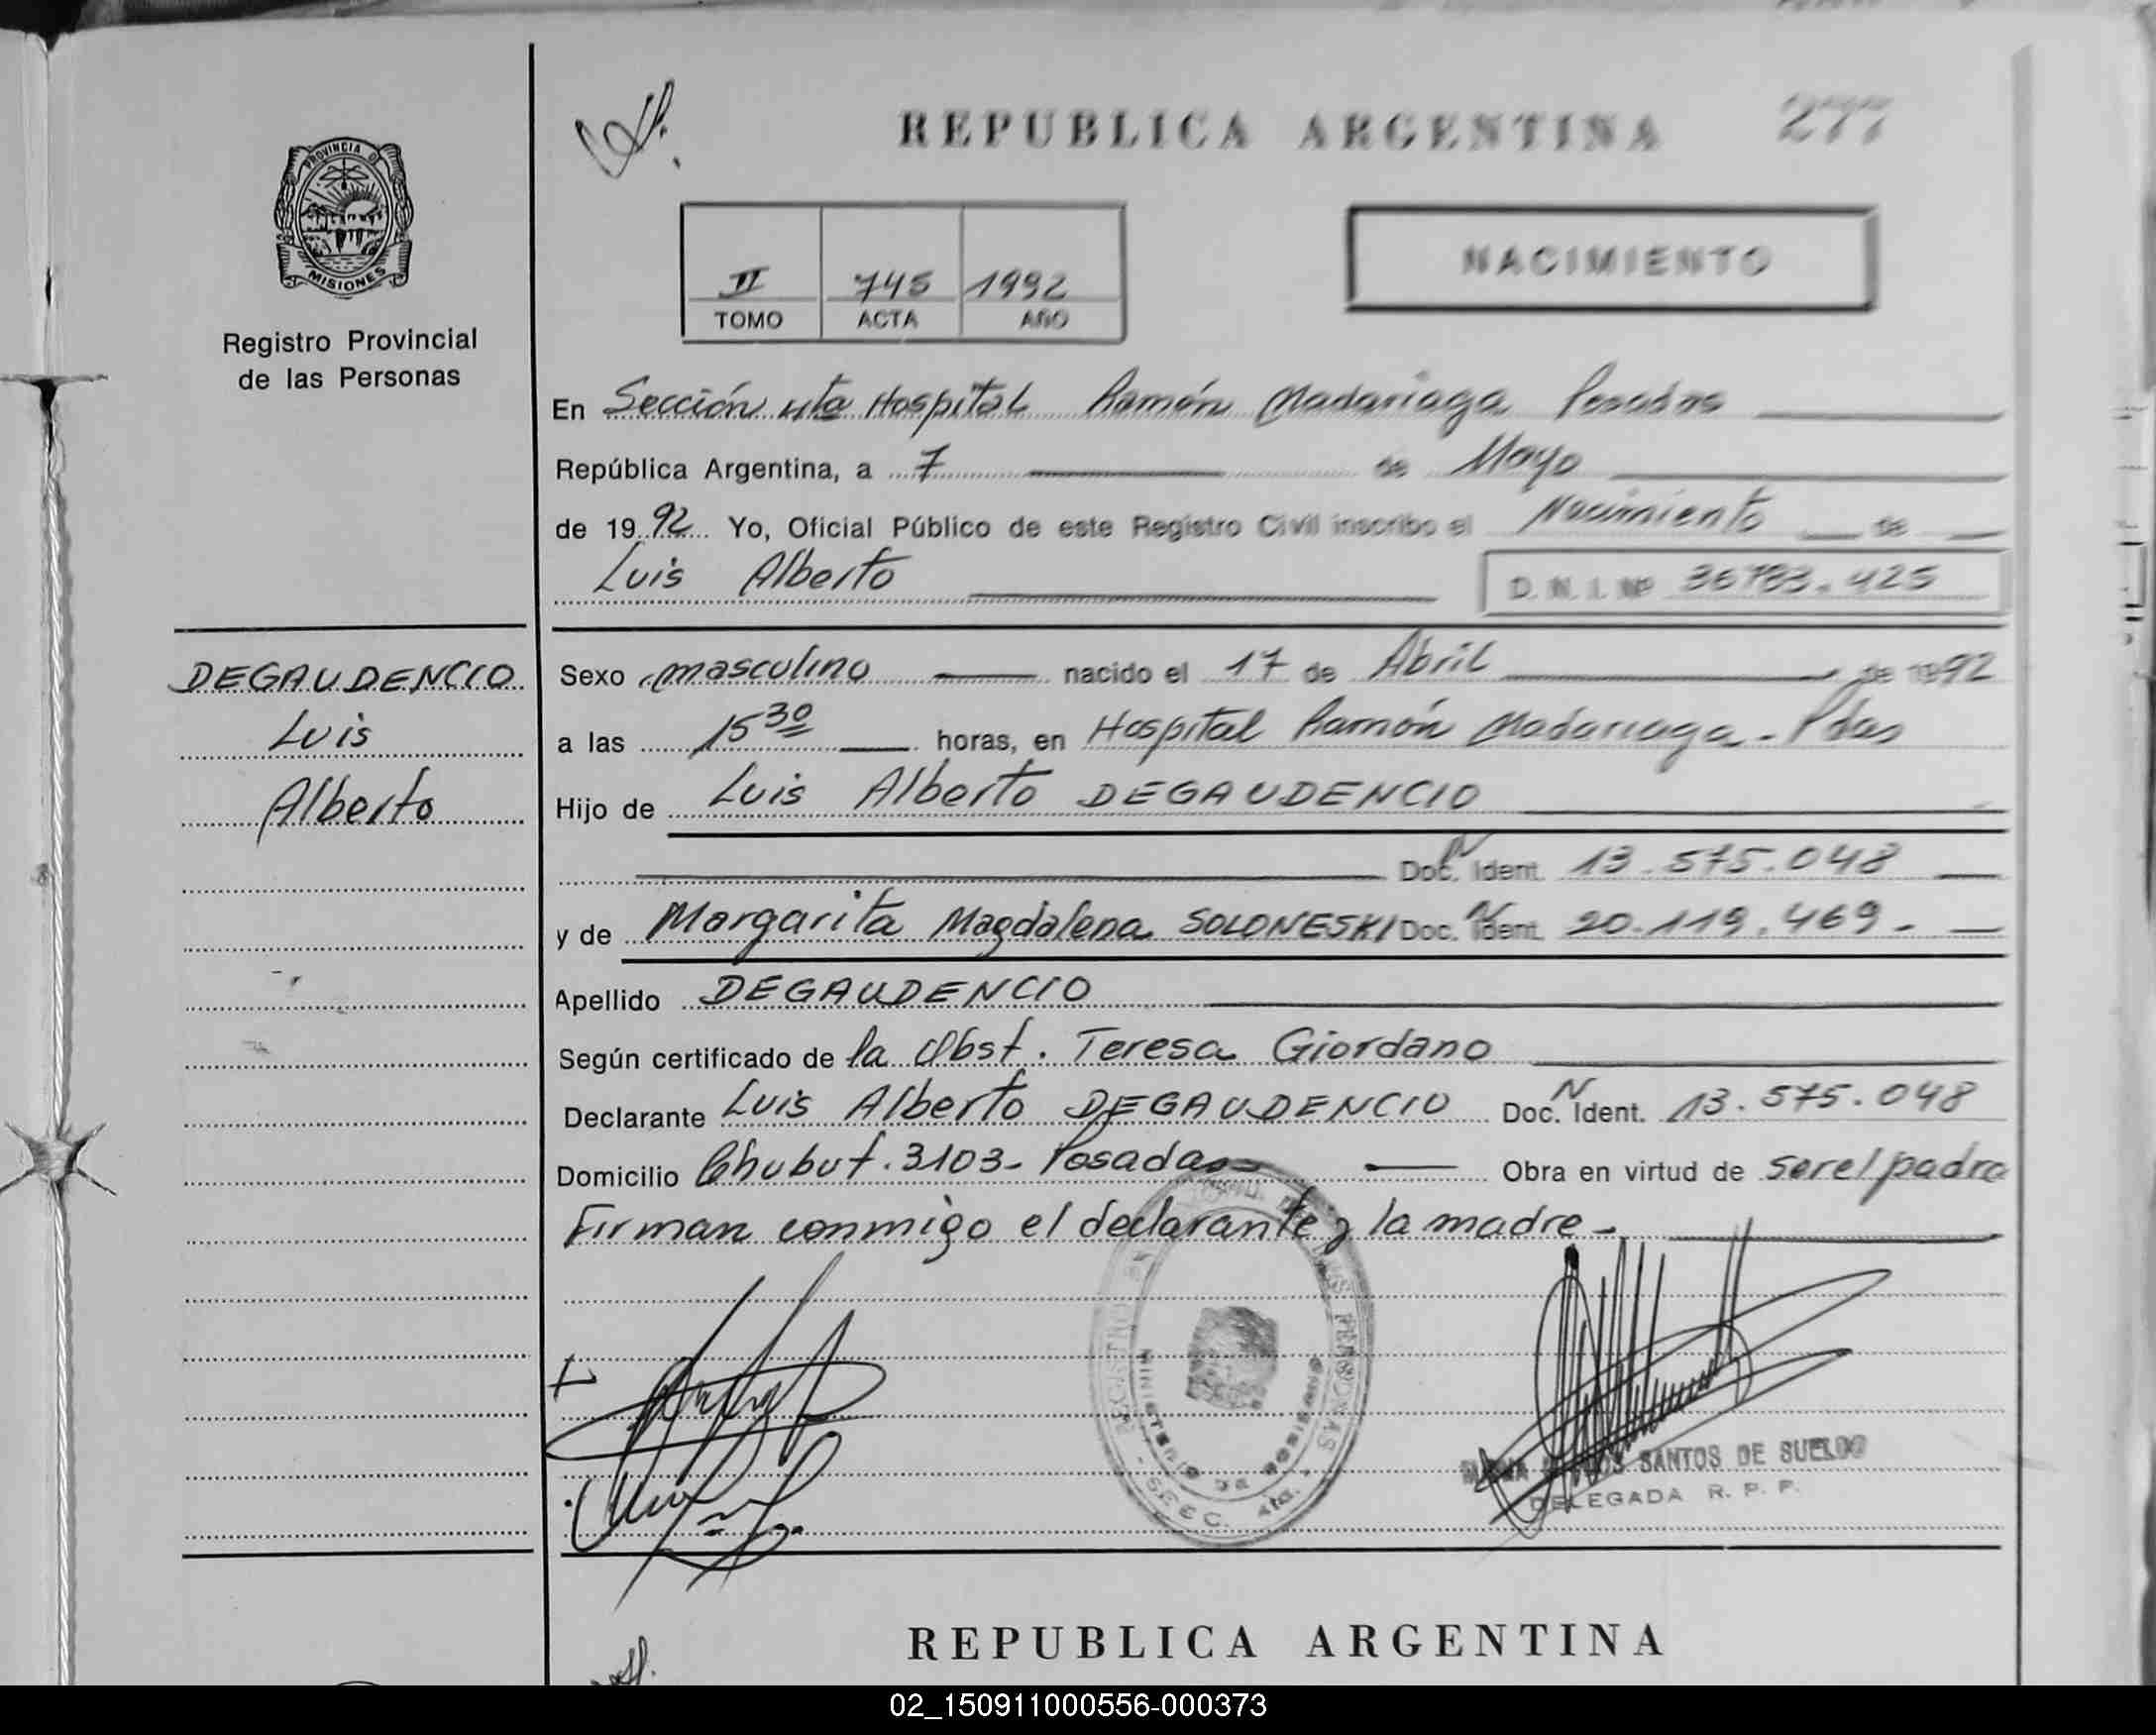 PROVINCIA D
MISIONES
Registro Provincial
de las Personas
REPUBLICA ARGENTINA 277
II 745 1992
TOMO ACTA AÑO
NACIMIENTO
En Sección 4ta Hospital Ramón Madariaga Posadas
República Argentina, a 7 de Mayo
de 1992 Yo, Oficial Público de este Registro Civil inscribo el Nacimiento de
Luis Alberto D.N.I. Nº 36783.425
DEGAUDENCIO
Luis
Alberto
Sexo masculino nacido el 17 de Abril de 1992
a las 15 30 horas, en Hospital Ramón Madariaga - Pdas
Hijo de Luis Alberto DEGAUDENCIO
Doc. N Ident. 13.575.048
y de Margarita Magdalena SOLONESKI Doc. N Ident. 20.119.469.-
Apellido DEGAUDENCIO
Según certificado de la Obst. Teresa Giordano
Declarante Luis Alberto DEGAUDENCIO Doc. N Ident. 13.575.048
Domicilio Chubut. 3103- Posadas Obra en virtud de ser el padre
Firman conmigo el declarante y la madre -
REGISTRO DE LAS PERSONAS
MINISTERIO DE GOBIERNO
- SECC. 4ta. -
SANTOS DE SUELDO
DELEGADA R. P. P.
REPUBLICA ARGENTINA
02_150911000556-000373